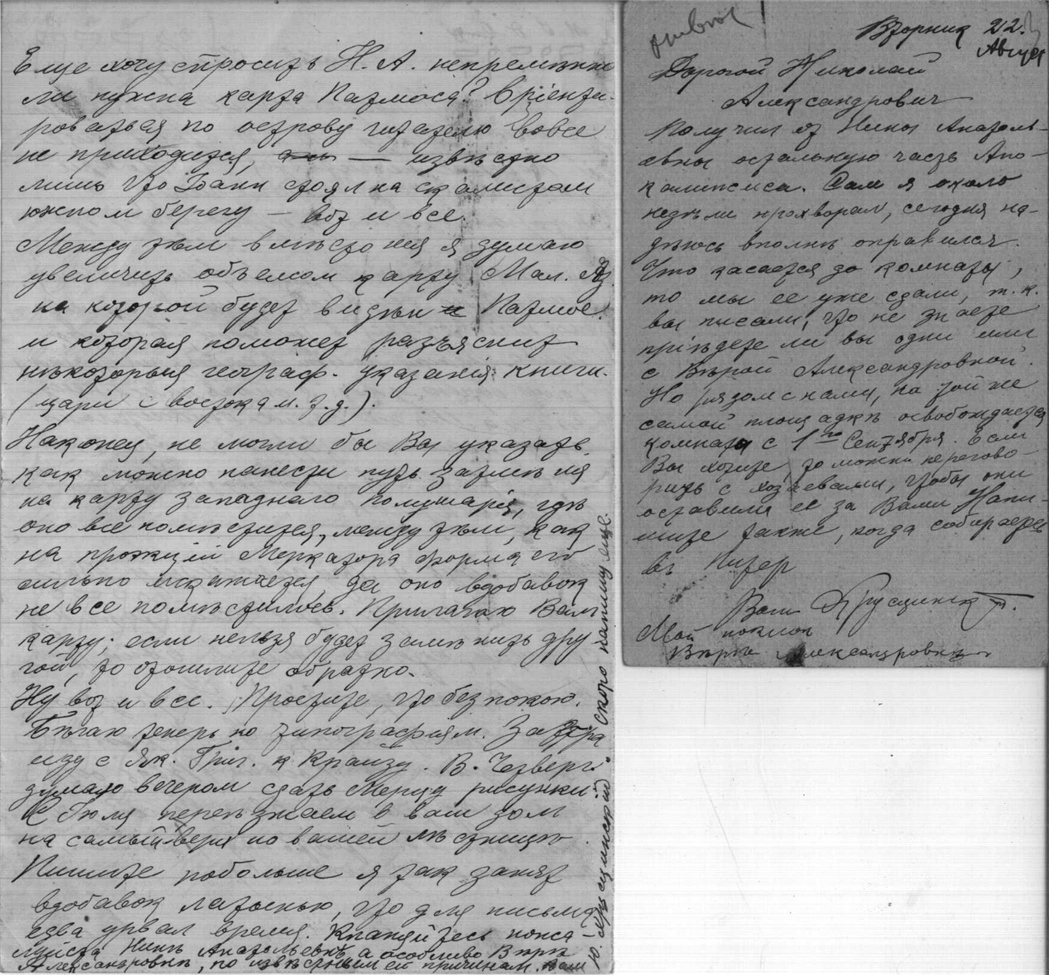 Еще хочу спросить Н. А. непременно
ли нужна карта Патмоса? Орiенти-
роваться по острову читателю вовсе
не приходится, — извѣстно
лишь что Iоанн стоял на скалистом
южном берегу — вот и все.
Между тѣм вмѣсто нея я думаю
увеличить объемом карту Мал. Аз.
на которой будет виден и Патмос.
и которая поможет разъяснить
нѣкоторыя географ. указанiя книги.
(цари с востока и. т. д.).
Наконец, не могли бы Вы указать
как можно нанести путь затменiя
на карту западнаго полушарiя, гдѣ
оно все помѣстится, между тѣм, как
на проекцiи Меркатора форма его
сильно искажается да оно вдобавок
не все помѣстилось. Прилагаю Вам
карту; если нельзя будет замѣнить дру
гой, то отошлите обратно.
Ну вот и все. Простите, что безпокою.
Бѣгаю теперь по типографiям. Завтра
иду с Як. Григ. к Крайзу. В. Четверг
думаю вечером сдать Менцу рисунки
С Iюля переѣзжаем в ваш дом
на самый верх по вашей лѣстницѣ
Пишите побольше я так занят
вдобавок латынью, что для письма
едва урвал время. Кланяйтесь пожа
луйста Нинѣ Анатольевнѣ, а особливо Вѣрѣ
Александровнѣ, по извѣстным ей причинам. Ваш
скоро напишу еще.
Вторник 22.
Август
Дорогой Николай
Александрович
Получил от Нины Анатоль-
евны остальную часть Апо-
калипсиса. Сам я около
недѣли прохворал, сегодня на-
дѣюсь вполнѣ оправился.
Что касается до комнаты,
то мы ее уже сдали, т. к.
вы писали, что не знаете
прiѣдете ли вы одни или
с Вѣрой Александровной.
Но рядом с нами, на той же
самой площадкѣ освобождается
комната с 1го Сентября. Если
Вы хотите, то можно перегово-
рить с хозяевами, чтобы они
оставили ее за Вами. Напи-
шите также, когда собираетесь
въ Питер
Ваш
Мой поклон
Вѣрѣ Александровнѣ